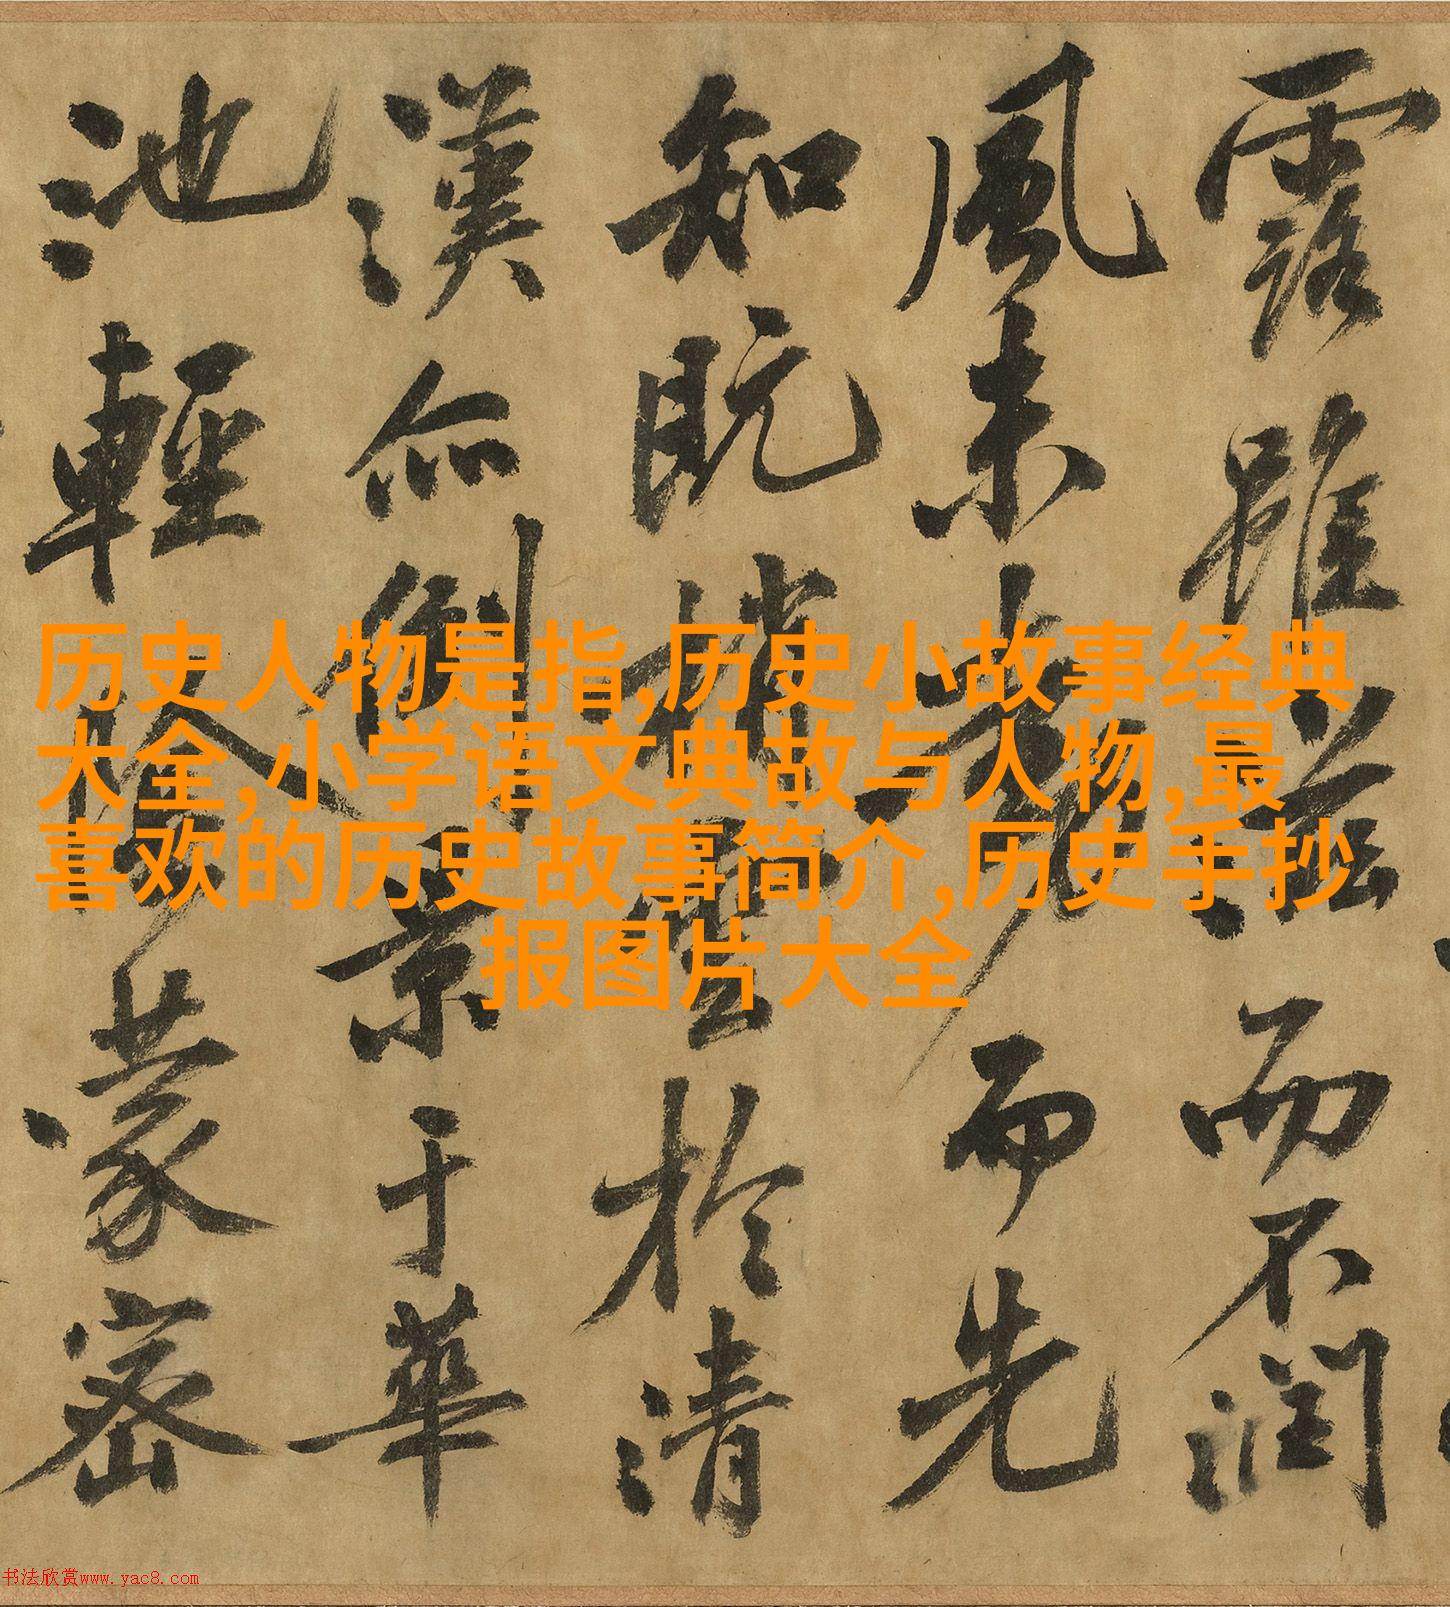 露雖滋而不潤
風未而先
知既捎雲於清
漢亦倒景于華
池輕陰蒙密
历史人物是指,历史小故事经典
大全,小学语文典故与人物,最
喜欢的历史故事简介,历史手抄
报图片大全
书法欣赏www.yac8.com